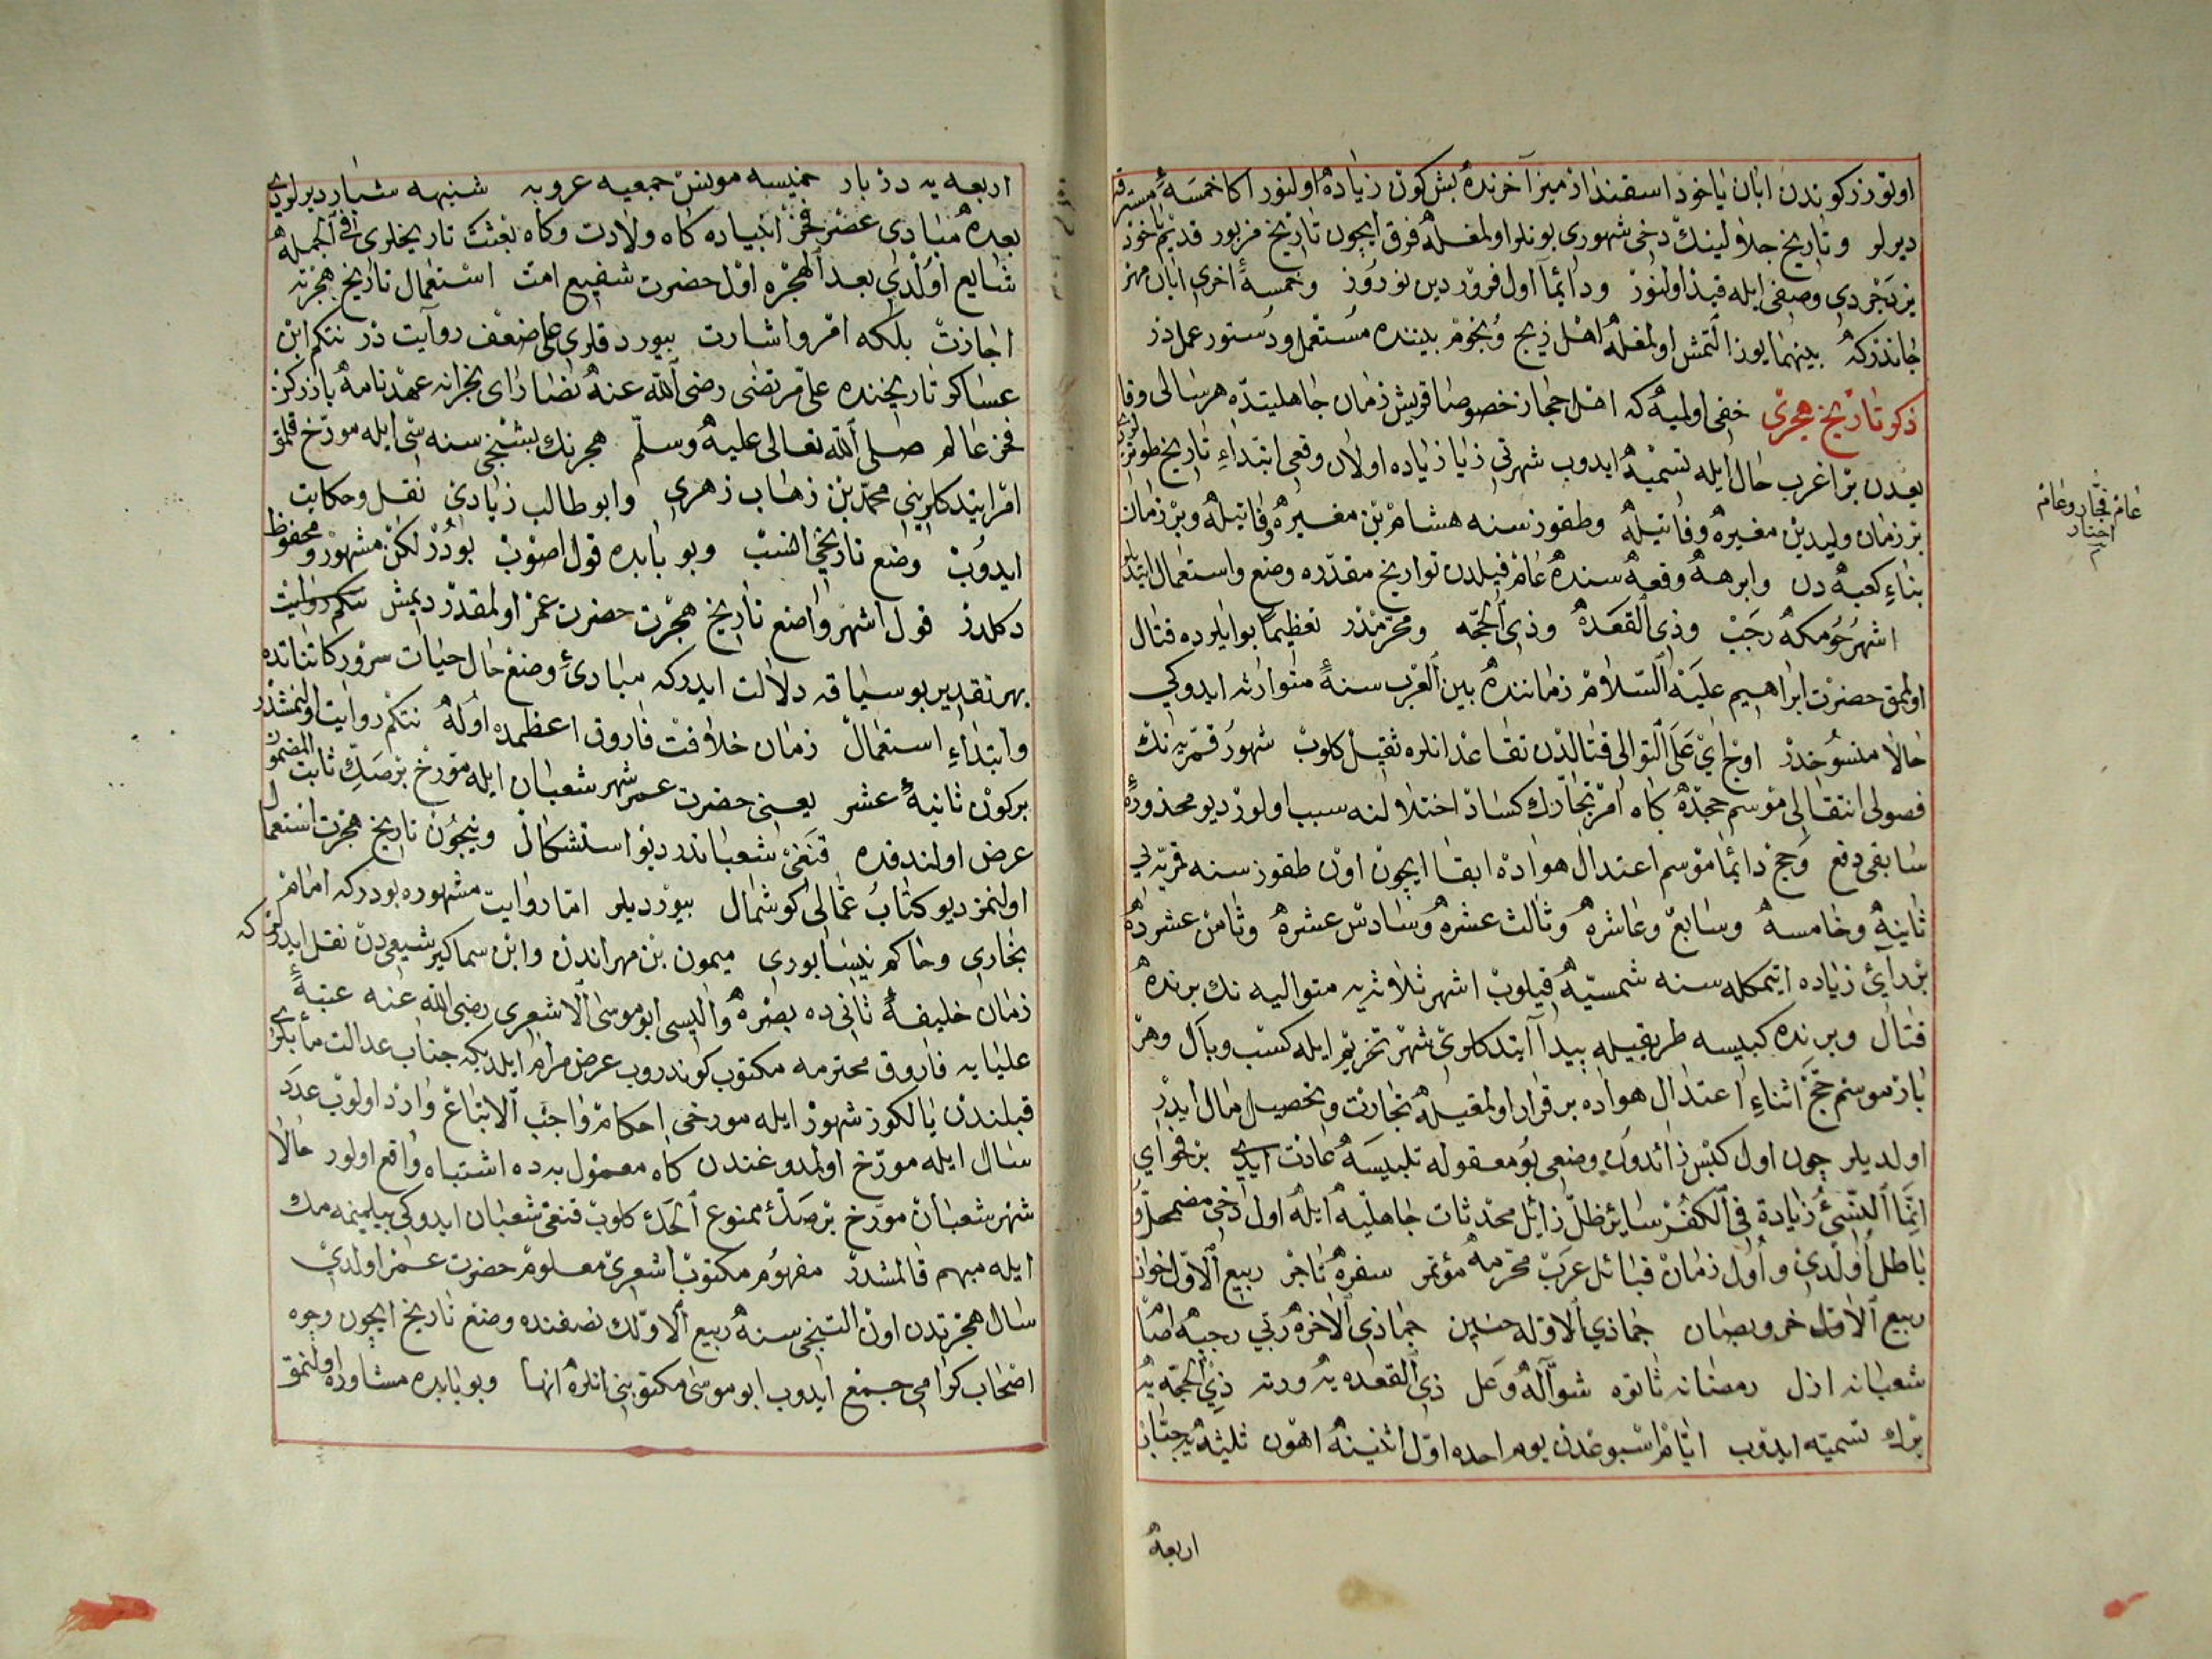 اوتوزر كوندن ابان ياخود اسفندارمز آخرنده بش كون زياده اولنور اكا خمسهٔ مسترقه
ديرلر و تاريخ جلالينك دخى شهورى بونلر اولمغله فرق ايچون تاريخ مزبور قديم ياخود
يزدجردى وصفى ايله قيد اولنور ودائما اول فروردين نوروز وخمسهٔ اخرى ابان مهر
جانذركه بينهما يوز التمش اولمغله اهل زيج ونجوم بيننده مستعمل ودستور عمل در
ذكر تاريخ هجرى خفى اولميه كه اهل حجاز خصوصا قريش زمان جاهليتده هر سالى وقا
يعدن بر اغرب حال ايله تسميه ايدوب شهرتى زيا زياده اولان وقعى ابتداء تاريخ طوتر
بر زمان وليد بن مغيره وفاتيله وطقوز سنه هشام بن مغيره وفاتيله وبر زمان
بناء كعبه دن وابرهه وقعه سنده عام فيلدن تواريخ مقدره وضع واستعمال ايتد
اشهر حرمكه رجب وذى القعده وذى الحجه ومحرمدر تعظيما بو ايلرده قتال
اولمق حضرت ابراهيم عليه السلام زماننده بين العرب سنهٔ متوارثه ايدوكى
حالا منسوخدر اوچ اى على التوالى قتالدن تقاعد انلره ثقيل كلوب شهور قمريه نك
فصولى انتقالى موسم حجده كاه امر تجارتك كساد اختلالنه سبب اولور ديو محذور
سابقى دفع وحج دائما موسم اعتدال هواده ابقا ايچون اون طقوز سنه قمريه لى
ثانيه وخامسه وسابع وعاشره وثالث عشره وسادس عشره وثامن عشرده
بر آى زياده ايتمكله سنه شمسيه قيلوب اشهر ثلاثه متواليه نك برنده
قتال وبرنده كبيسه طريقيله پيدا ايتدكلرى شهر تحريم ايله كسب وبال وهر
بار موسم حج اثناء اعتدال هواده برقرار اولمغيله تجارت وتحصيل مال ايدر
اولديلر چون اول كبس زائدون وضعى بو معقوله تلبيسه عادت ايدى بر فحواى
انما النسئ زيادة فى الكفر ساير ظل زائل محدثات جاهليه ايله اول دخى مضمحل و
باطل اولدى و اول زمان قبائل عرب محرمه مؤتمر سفره ناجر ربيع الاول خوان
ربيع الاخر وبصان جماذي الاوله حنين جماذى الاخره ربي رجبه اصما
شعبانه اذل رمضانه ناتوه شواله وعل ذى القعده يه ورنه ذى الحجه يه
برك تسميه ايدوب ايام اسبوعدن يوم احده اول اثنينه اهون ثليثه يه جبار
عام فجار وعام
اربعه
اربعه يه دبار خميسه مونس جمعيه عروبه شنبهه شبار ديرلردى
بعده مبادى عصر فخر انبياده كاه ولادت وكاه بعثت تاريخلرى فى الجمله
شايع اولدى بعد الهجره اول حضرت شفيع امت استعمال تاريخ هجرته
اجازت بلكه امر واشارت بيوردقلرى على ضعف روايت در نتكم ابن
عساكر تاريخنده على مرتضى رضى الله عنه نصاراى نجرانه عهدنامه يازركن
فخر عالم صلى الله تعالى عليه وسلم هجرتك بشنجى سنه سى ايله مورخ قلمق
امر ايتدكلرينى محمد بن زهاب زهرى وابو طالب زيادى نقل وحكايت
ايدوب وضع تاريخى انسب وبو بابده قول اصوب بودر لكن مشهور و محفوظ
دكلدر قول اشهر واضع تاريخ هجرت حضرت عمر اولمقدر ديمش
بهر تقدير بو سياقه دلالت ايدركه مبادئ وضع حال حيات سرور كائناتده
وابتداء استعمال زمان خلافت فاروق اعظمده اوله نتكم روايت اولنمشدر
بركون ثانيهٔ عشر يعنى حضرت عمر شهر شعبان ايله مورخ بر صك ثابت المضمون
عرض اولندقده قنغى شعباندر ديو استشكال ونيچون تاريخ هجرت استعمال
اولنمز ديو كتاب عمالى كوشمال بيورديلر اما روايت مشهوره بودركه امام
بخارى وحاكم نيسابورى ميمون بن مهراندن وابن سماكر شيعيدن نقل ايدرلركه
زمان خليفهٔ ثانى ده بصره واليسى ابو موسى الاشعرى رضى الله عنه عتبهٔ
عليايه فاروق محترمه مكتوب كوندروب عرض مرام ايلديكه جناب عدالت مآبلرى
قبلندن يالكوز شهور ايله مورخى احكام واجب الاتباع وارد اولوب عدد
سال ايله مورخ اولمدوغندن كاه معمول به ده اشتباه واقع اولور حالا
شهر شعبان مورخ بر صك ممنوع الحك كلوب قنغى شعبان ايدوكى بيلينمه مك
ايله مبهم قالمشدر مفهوم مكتوب اشعرى معلوم حضرت عمر اولدى
سال هجرتدن اون التنجى سنه ربيع الاولك نصفنده وضع تاريخ ايچون وجوه
اصحاب كرامى جمع ايدوب ابو موسى مكتوبنى انلره انها وبو بابده مشاوره اولنمق